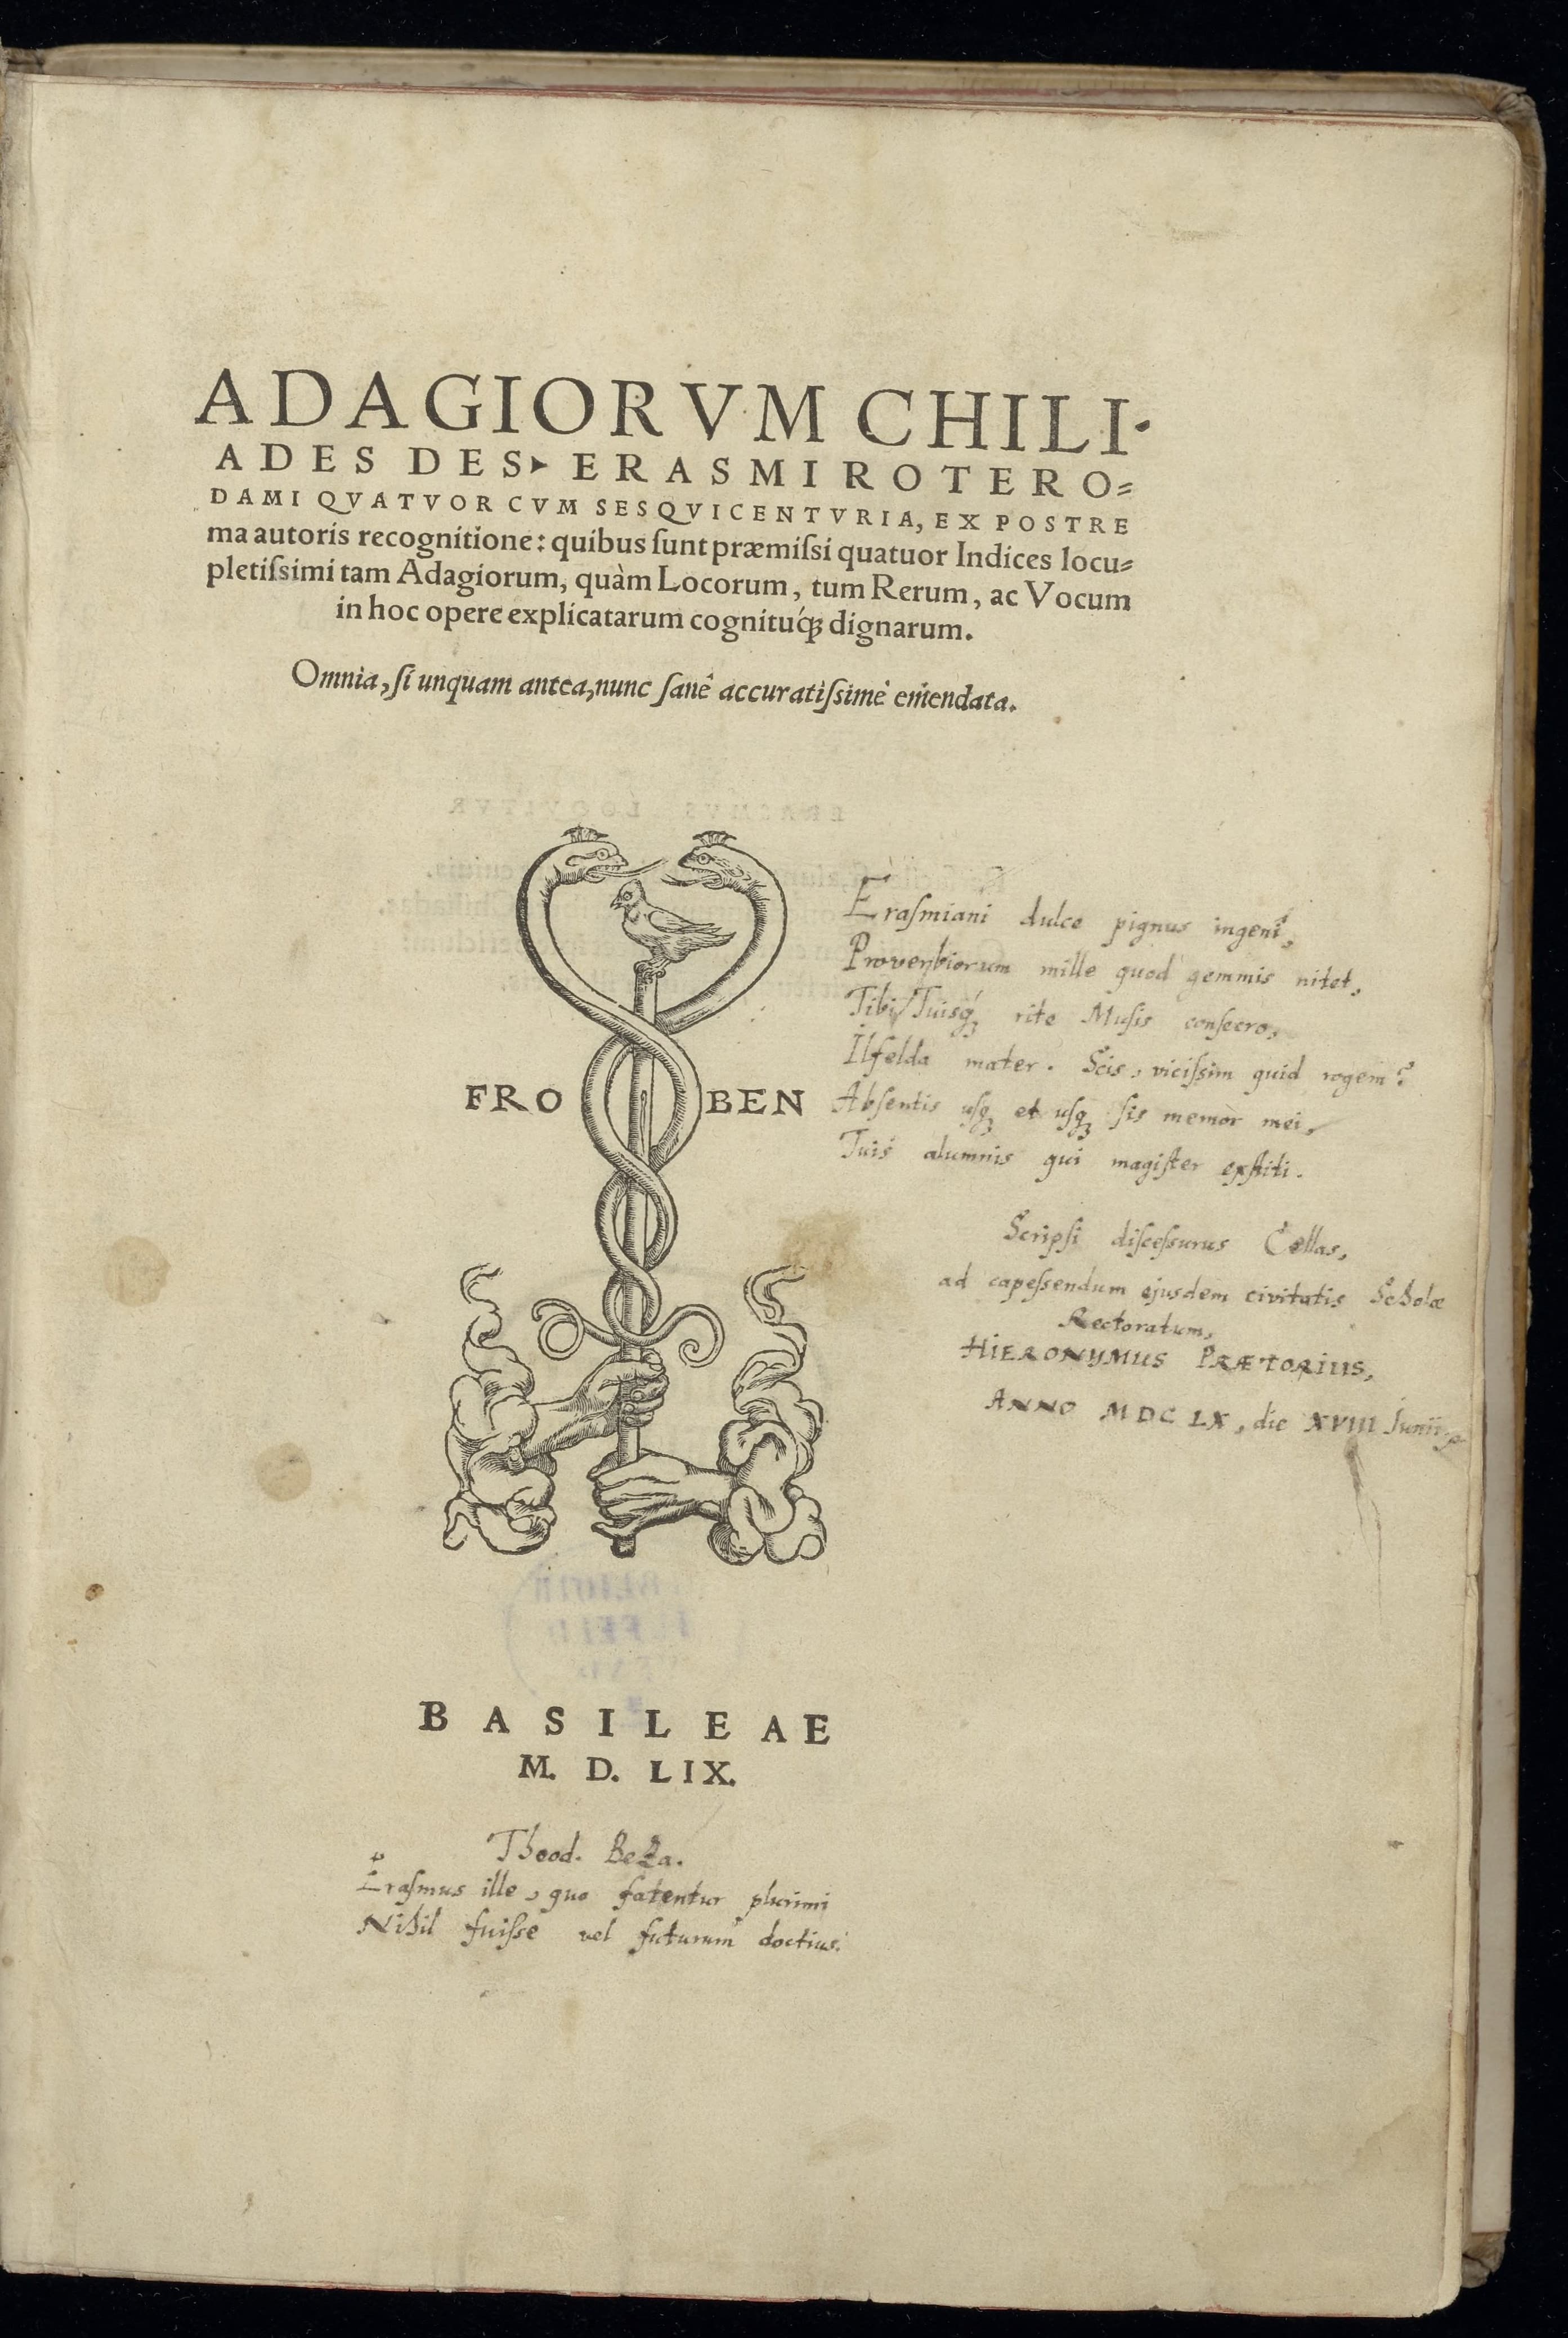 ADAGIORVM CHILI-
ADES DES▸ ERASMI ROTERO=
DAMI QVATVOR CVM SESQVICENTVRIA, EX POSTRE
ma autoris recognitione: quibus ſunt præmiſsi quatuor Indices locu=
pletiſsimi tam Adagiorum, quàm Locorum, tum Rerum, ac Vocum
in hoc opere explicatarum cognituq́ꝫ dignarum.
Omnia, ſi unquam antea, nunc ſanè accuratiſsimè emendata.
FRO BEN
Eraſmiani dulce pignus ingenî,
Proverbiorum mille quod gemmis nitet,
Tibi, Tuisq́ꝫ rite Muſis conſecro,
Ilfelda mater. Scis, viciſsim quid rogem?
Abſentis uſqꝫ et uſqꝫ ſis memor mei,
Tuis alumnis qui magiſter exſtiti.
Scripſi diſceſsurus Cellas,
ad capeſsendum ejusdem civitatis Scholæ
Rectoratum,
HIERONYMUS PRÆTORIUS,
ANNO MDCLX, die XVIII Junii
BASILEAE
M. D. LIX.
Theod. Beza.
Eraſmus ille, quo fatentur plurimi
Nihil fuiſse vel futurum doctius.